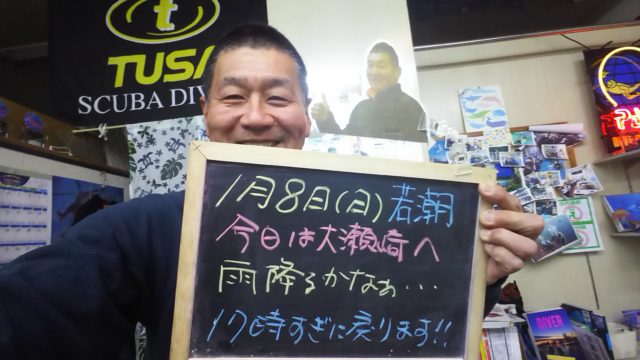 TUSA
SCUBA DIV
1月8日(日)若潮
今日は大瀬崎へ
雨降るかなぁ…
17時すぎに戻ります!!
DIVER